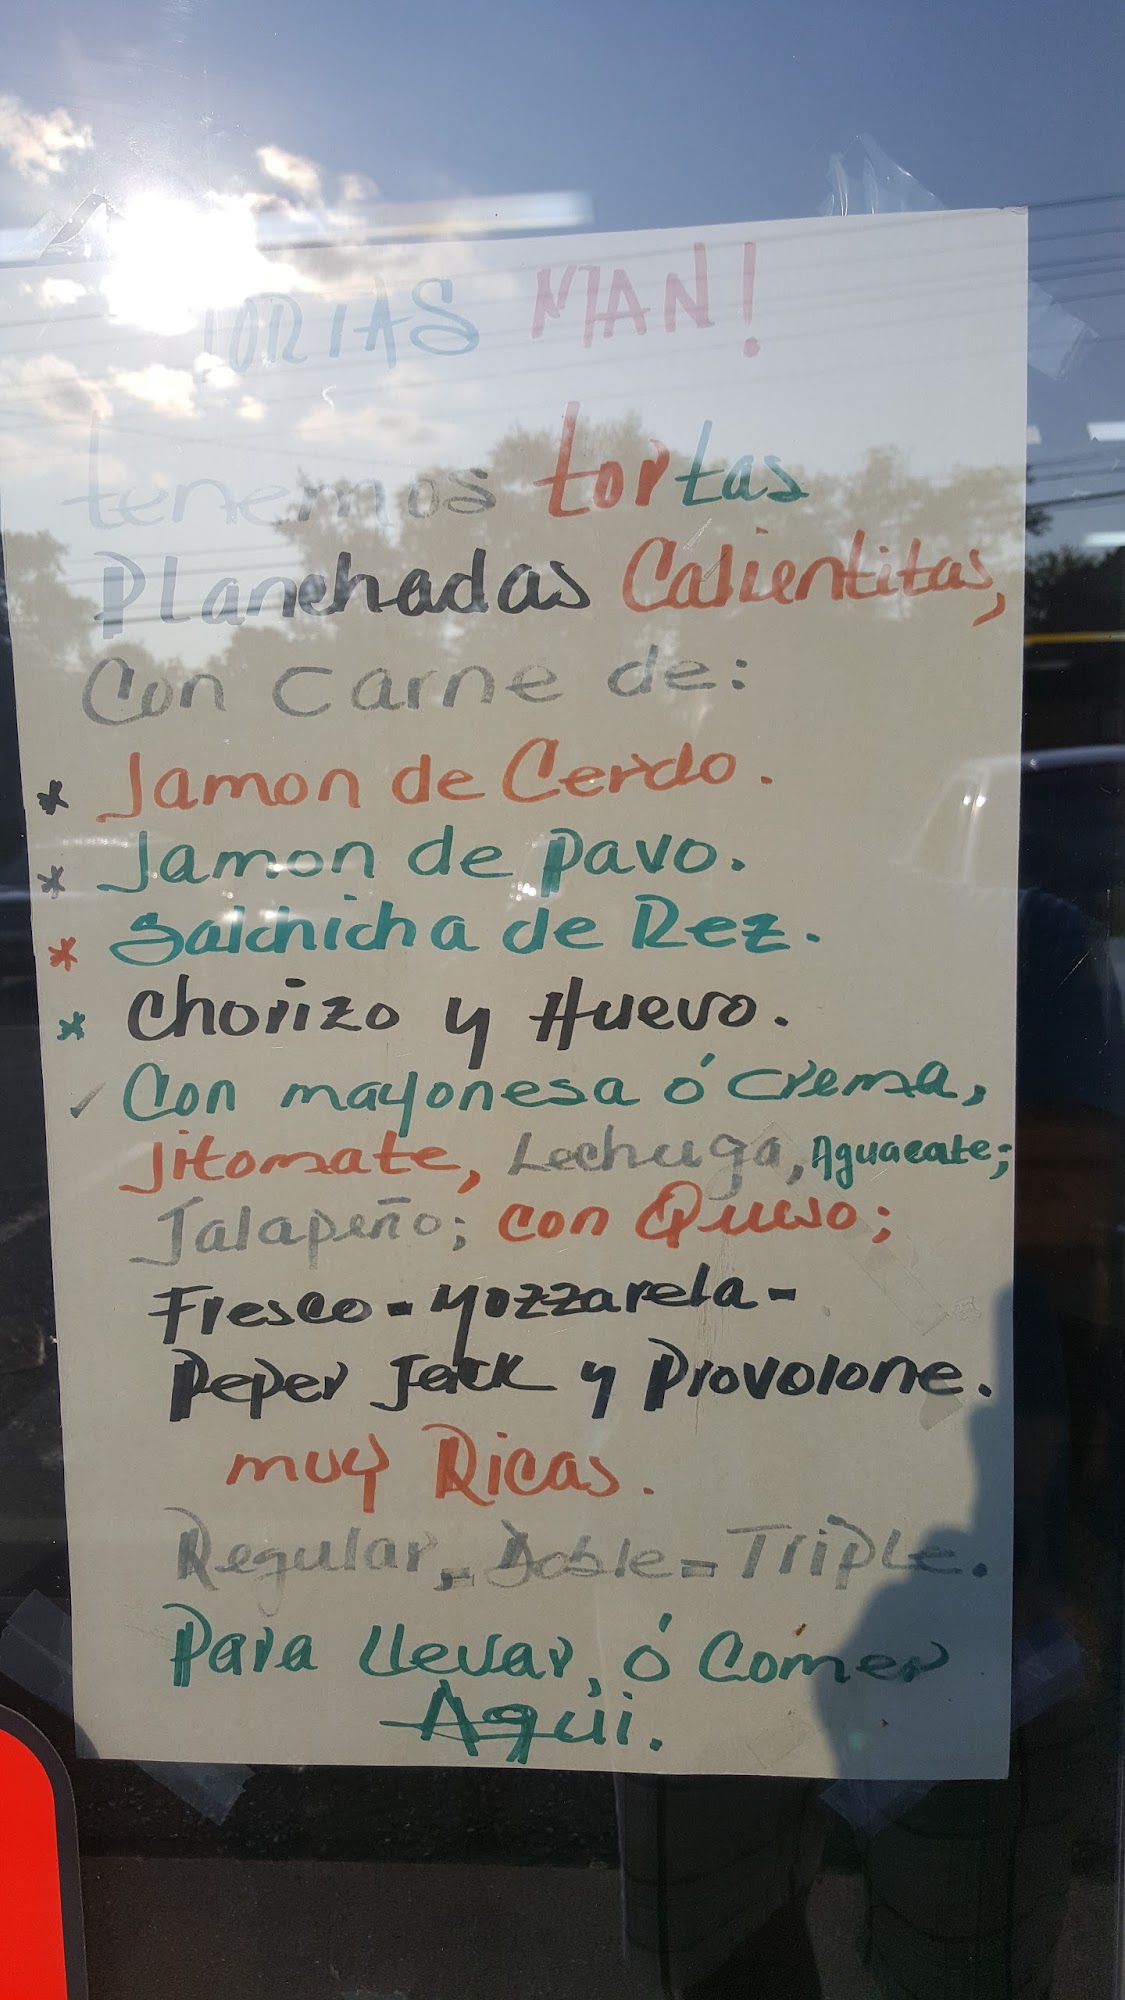 TORTAS MAN!
tenemos tortas
Planchadas Calientitas,
Con carne de:
* Jamon de Cerdo.
* Jamon de pavo.
* Salchicha de Rez.
* Chorizo y Huevo.
✓ Con mayonesa ó crema,
Jitomate, Lechuga, Aguacate;
Jalapeño; con Queso;
Fresco - Mozzarela -
Peper Jack y Provolone.
muy Ricas.
Regular, - Doble = Triple.
Para llevar, ó Comer
Aqui.